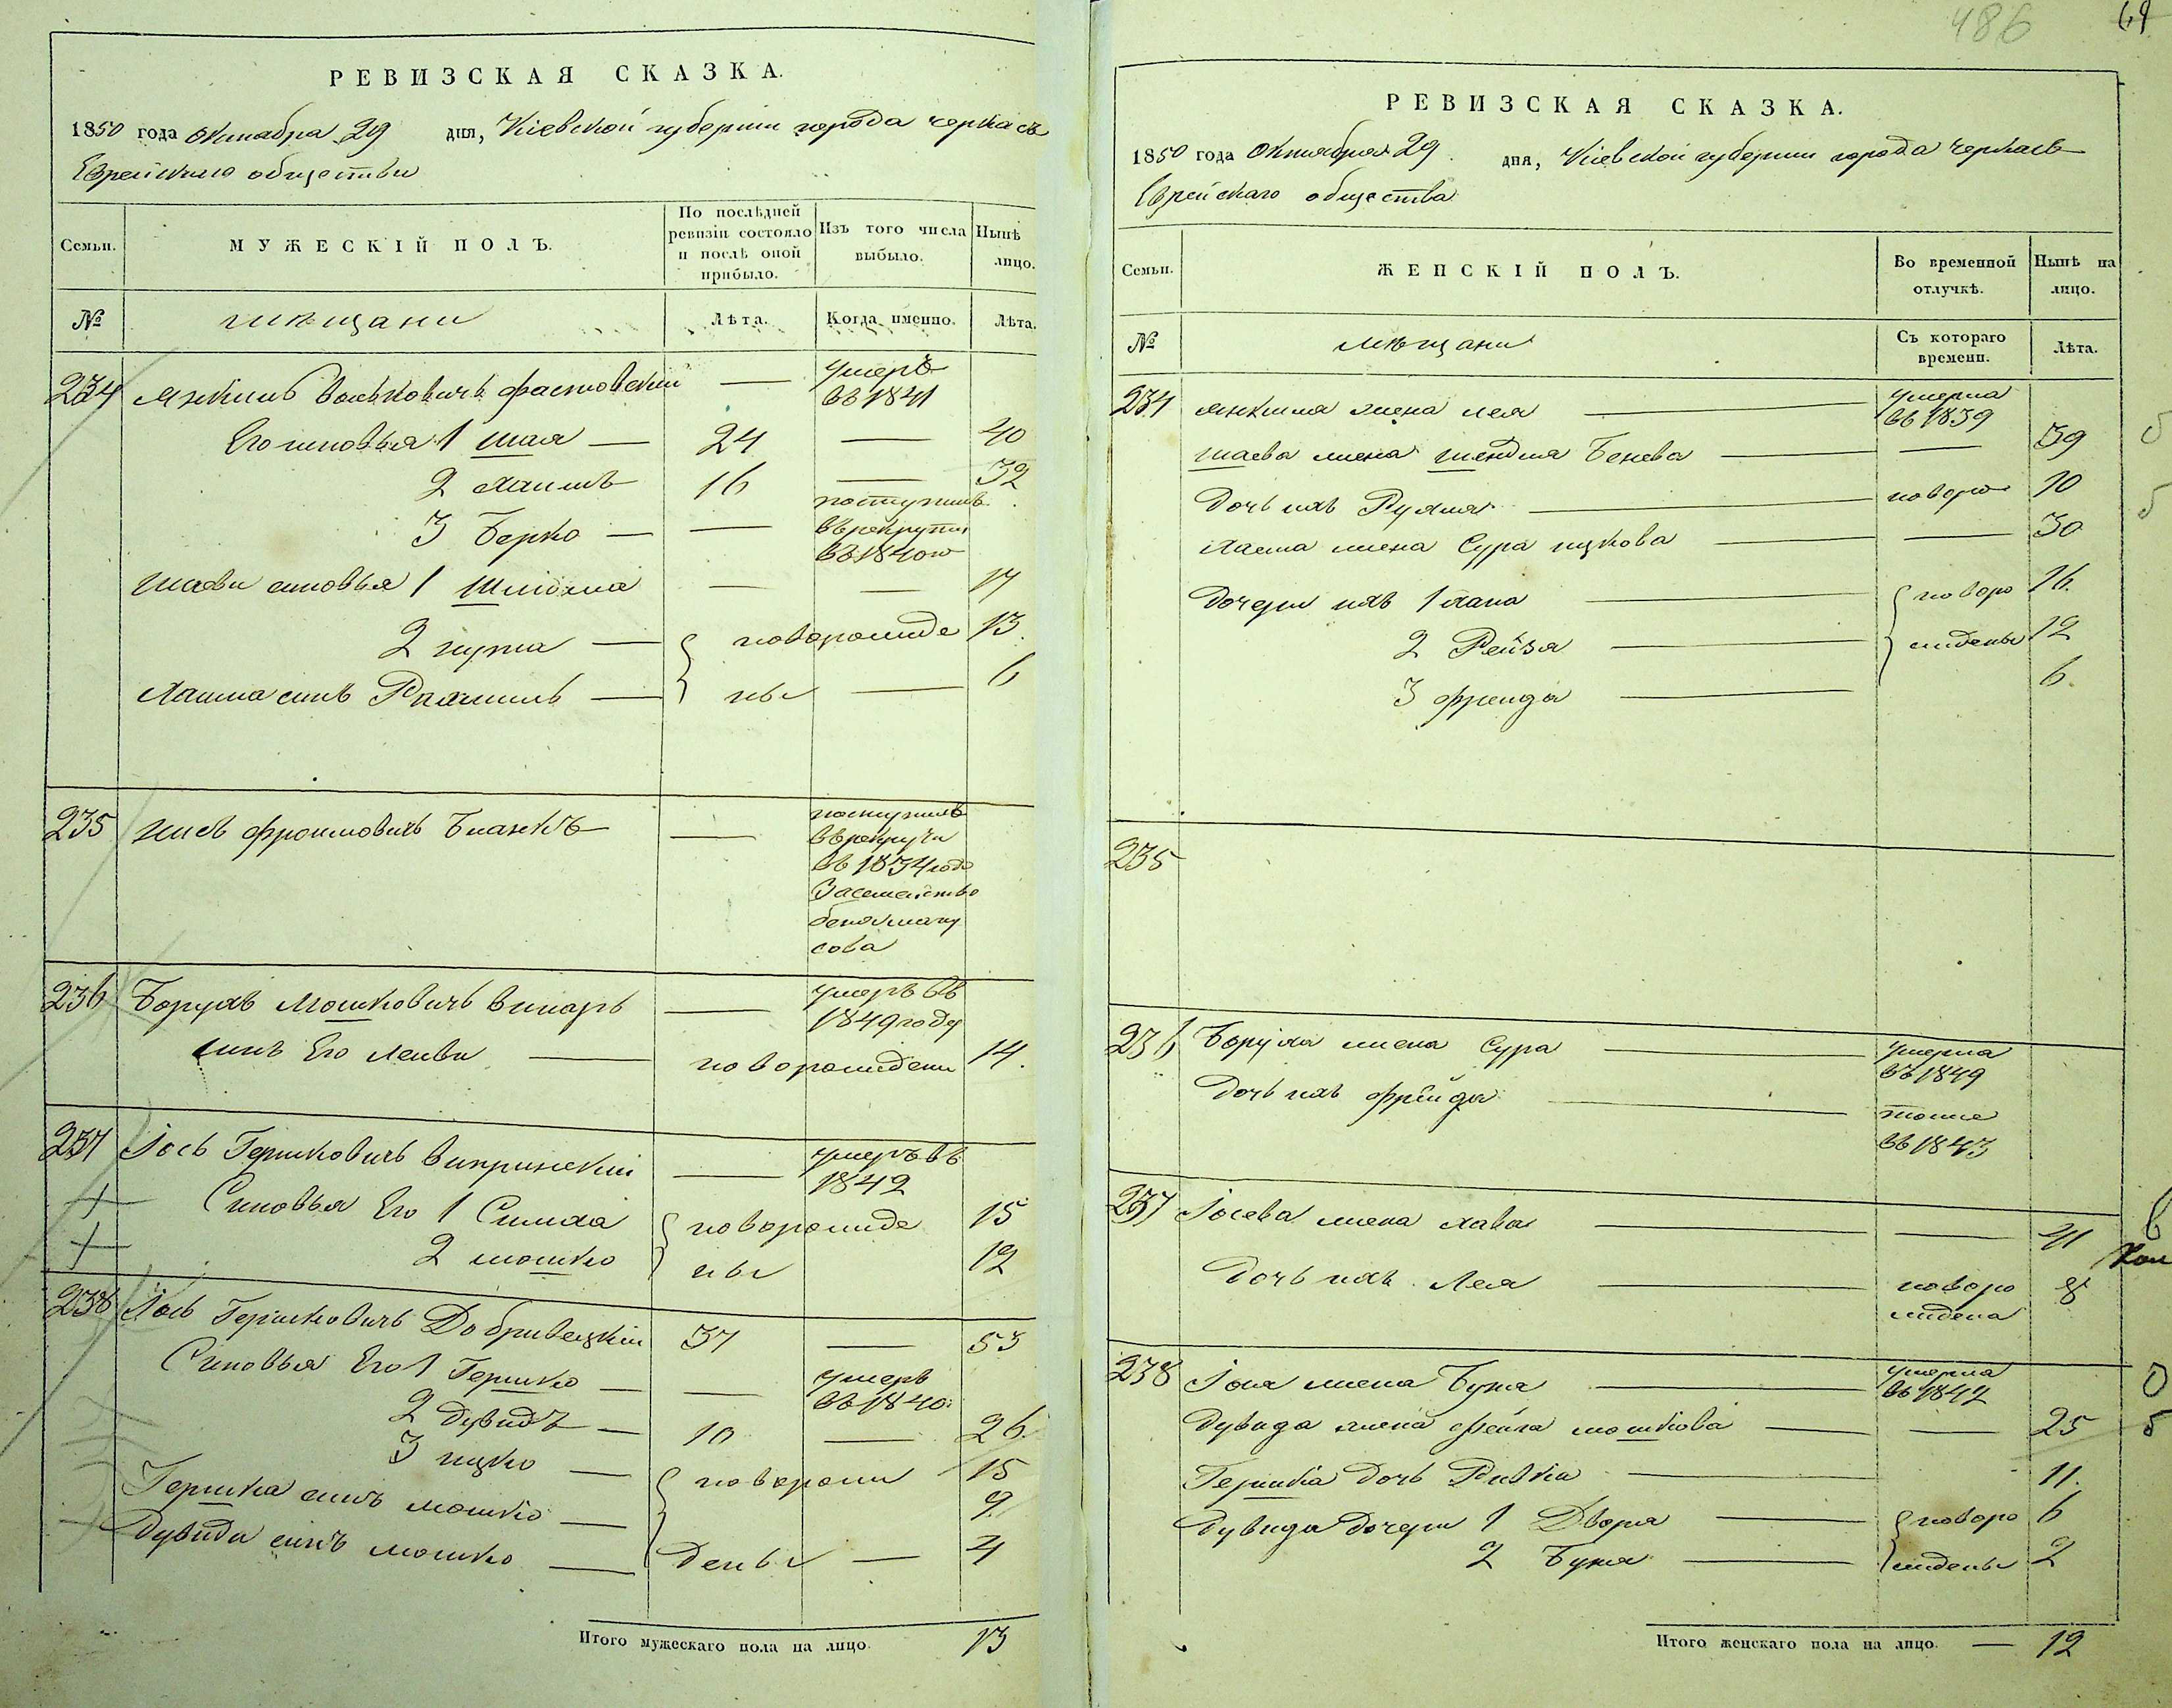 РЕВИЗСКАЯ СКАЗКА.
1850 года Октября 29 дня, Кіевской губерніи города Черкасъ
Еврейскаго общества
Семьи.
МУЖЕСКІЙ ПОЛЪ.
По послѣдней ревизіи состояло и послѣ оной прибыло.
Изъ того числа выбыло.
Нынѣ лицо.
№
мѣщани
Лѣта.
Когда именно.
Лѣта.
234 Янкель Волковичъ Фастовскій — умеръ въ 1841
Его сыновья 1 Шая — 24 — 40
2 Хаимъ 16 — 32
3 Берко — — поступилъ въ рекруты въ 1840го
Шаевы сыновья 1 Шліома — — 17
2 — новорожде 13
Хаима сынъ Рахмиль — ны — 6
235 Фроимовичъ Бланкъ — поступилъ
въ рекруты
въ 1834 годе
За семейство
сова
236 Борухъ Мошковичъ Винаръ — умеръ въ 1849 году
сынъ Его Лейви — новорожденъ 14.
237 Іось Гершковичъ — умеръ въ 1842
Сыновья Его 1 Симха новорожде 15
2 Мошко ны 12
238 Іось Гершковичъ 37 — 53
Сыновья Его 1 Гершко — — умеръ въ 1840.
2 Дувидъ — 10 — 26
3 Ицко — новорож 15
Гершка сынъ Мошко — 9.
Дувида сынъ Мошко — дены — 4
Итого мужескаго пола на лицо. 13
486
РЕВИЗСКАЯ СКАЗКА.
1850 года Октября 29 дня, Кіевской губерніи города Черкасъ
Еврейскаго общества
Семьи.
ЖЕНСКІЙ ПОЛЪ.
Во временной отлучкѣ.
Нынѣ на лицо.
№
мѣщани
Съ котораго времени.
Лѣта.
234 Янкиля жена Лея — умерла въ 1839
Шаева жена Шендля Бенева — — 39
Дочь ихъ Рухля — новоро 10
Хаима жена Сура Ицкова — — 30
Дочери ихъ 1 Хана — новоро 16.
2 Рейза — жденны 12
3 Фрейда — 6.
235
236 Боруха жена Сура — умерла въ 1849
Дочь ихъ Фрейда — тоже въ 1843
237 Іосева жена Хава — — 41
Дочь ихъ Лея — новоро ждена 8
238 Іося жена Буня — умерла въ 1842
Дувида жена Фейга Мошкова — — 25
Гершка дочь Ривка — 11.
Дувида дочери 1 Двора — новоро 6
2 Буня — ждены 2
Итого женскаго пола на лицо. — 12